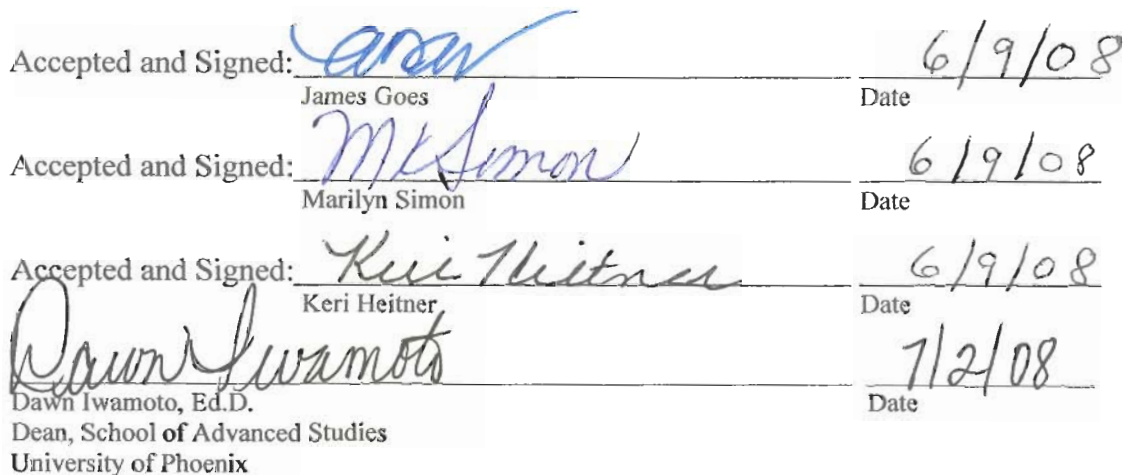 Accepted and Signed: 6/9/08
James Goes Date
Accepted and Signed: MKSimon 6/9/08
Marilyn Simon Date
Accepted and Signed: Keri Heitner 6/9/08
Keri Heitner Date
Dawn Iwamoto 7/2/08
Dawn Iwamoto, Ed.D. Date
Dean, School of Advanced Studies
University of Phoenix